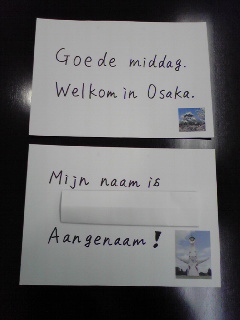 Goede middag.
Welkom in Osaka.
Mijn naam is
Aangenaam!